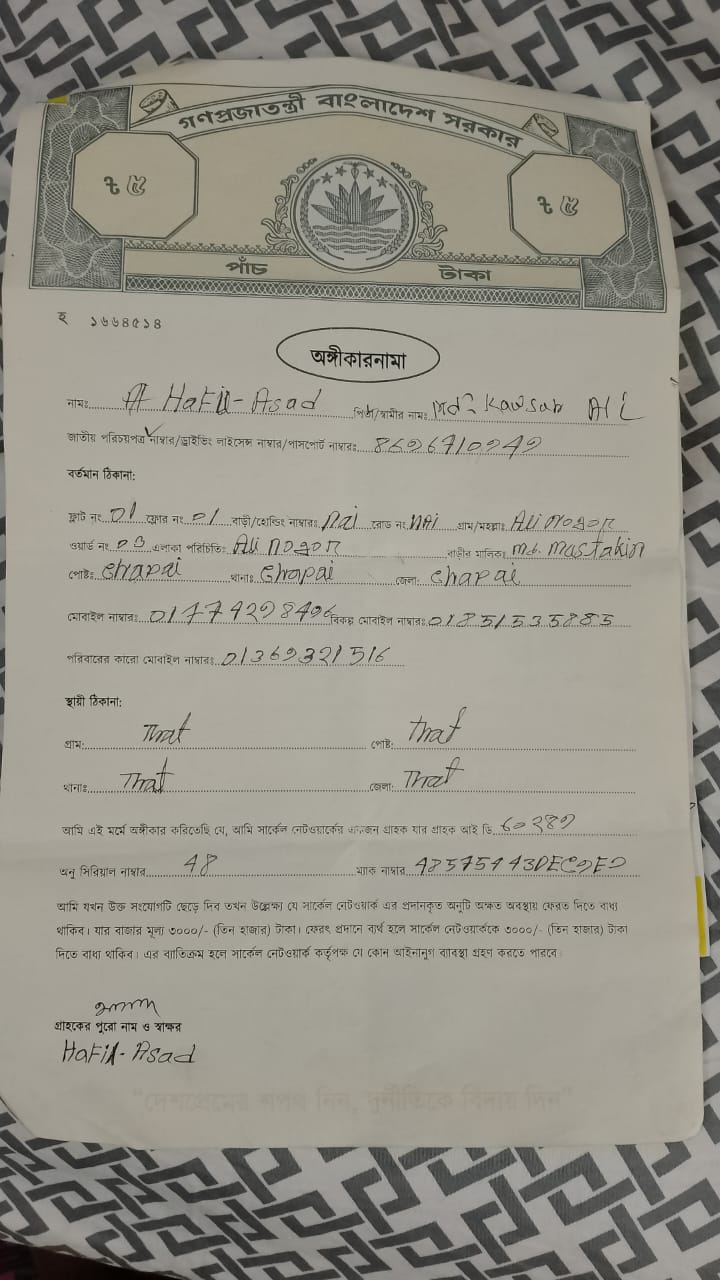 গণপ্রজাতন্ত্রী বাংলাদেশ সরকার
৳ ৫ ৳ ৫
পাঁচ টাকা
হ ১৬৬৪৫১৪
অঙ্গীকারনামা
নামঃ A Hafil-Asad পিতা/স্বামীর নাম: Md. Kawsar Ali
জাতীয় পরিচয়পত্র নাম্বার/ড্রাইভিং লাইসেন্স নাম্বার/পাসপোর্ট নাম্বারঃ
বর্তমান ঠিকানা:
ফ্লাট নং 01 ফ্লোর নং 01 বাড়ী/হোল্ডিং নাম্বারঃ Nai রোড নং NAi গ্রাম/মহল্লাঃ Ali nogor
ওয়ার্ড নং 03 এলাকা পরিচিতিঃ Ali nogor বাড়ীর মালিকঃ Md. Mustakin
পোষ্টঃ Chapai থানাঃ Chapai জেলা: Chapai
মোবাইল নাম্বারঃ বিকল্প মোবাইল নাম্বারঃ
পরিবারের কারো মোবাইল নাম্বারঃ 01369321516
স্থায়ী ঠিকানা:
গ্রাম: That পোষ্ট: That
থানাঃ That জেলা: That
আমি এই মর্মে অঙ্গীকার করিতেছি যে, আমি সার্কেল নেটওয়ার্কের একজন গ্রাহক যার গ্রাহক আই ডি
অনু সিরিয়াল নাম্বার 48 ম্যাক নাম্বার
আমি যখন উক্ত সংযোগটি ছেড়ে দিব তখন উল্লেক্ষ্য যে সার্কেল নেটওয়ার্ক এর প্রদানকৃত অনুটি অক্ষত অবস্থায় ফেরত দিতে বাধ্য
থাকিব। যার বাজার মূল্য ৩০০০/- (তিন হাজার) টাকা। ফেরৎ প্রদানে ব্যর্থ হলে সার্কেল নেটওয়ার্ককে ৩০০০/- (তিন হাজার) টাকা
দিতে বাধ্য থাকিব। এর ব্যতিক্রম হলে সার্কেল নেটওয়ার্ক কর্তৃপক্ষ যে কোন আইনানুগ ব্যাবস্থা গ্রহণ করতে পারবে।
গ্রাহকের পুরো নাম ও স্বাক্ষর
Hafil-Asad
"দেশপ্রেমের শপথ নিন, দুর্নীতিকে বিদায় দিন"